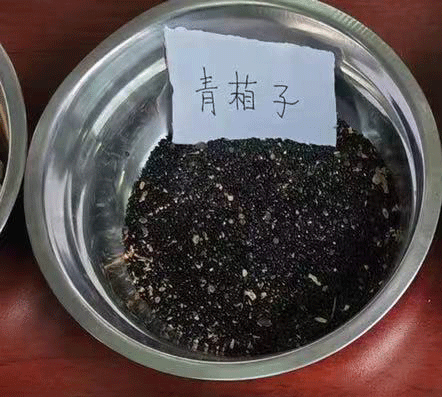 青葙子